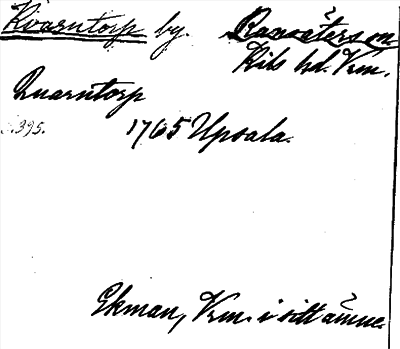 Kvarntorp by. Ransäters sn
Kils hd. Vrm.
Quarntorp
1765 Upsala.
S. 395.
Ekman, Vrm. i sitt ämne.